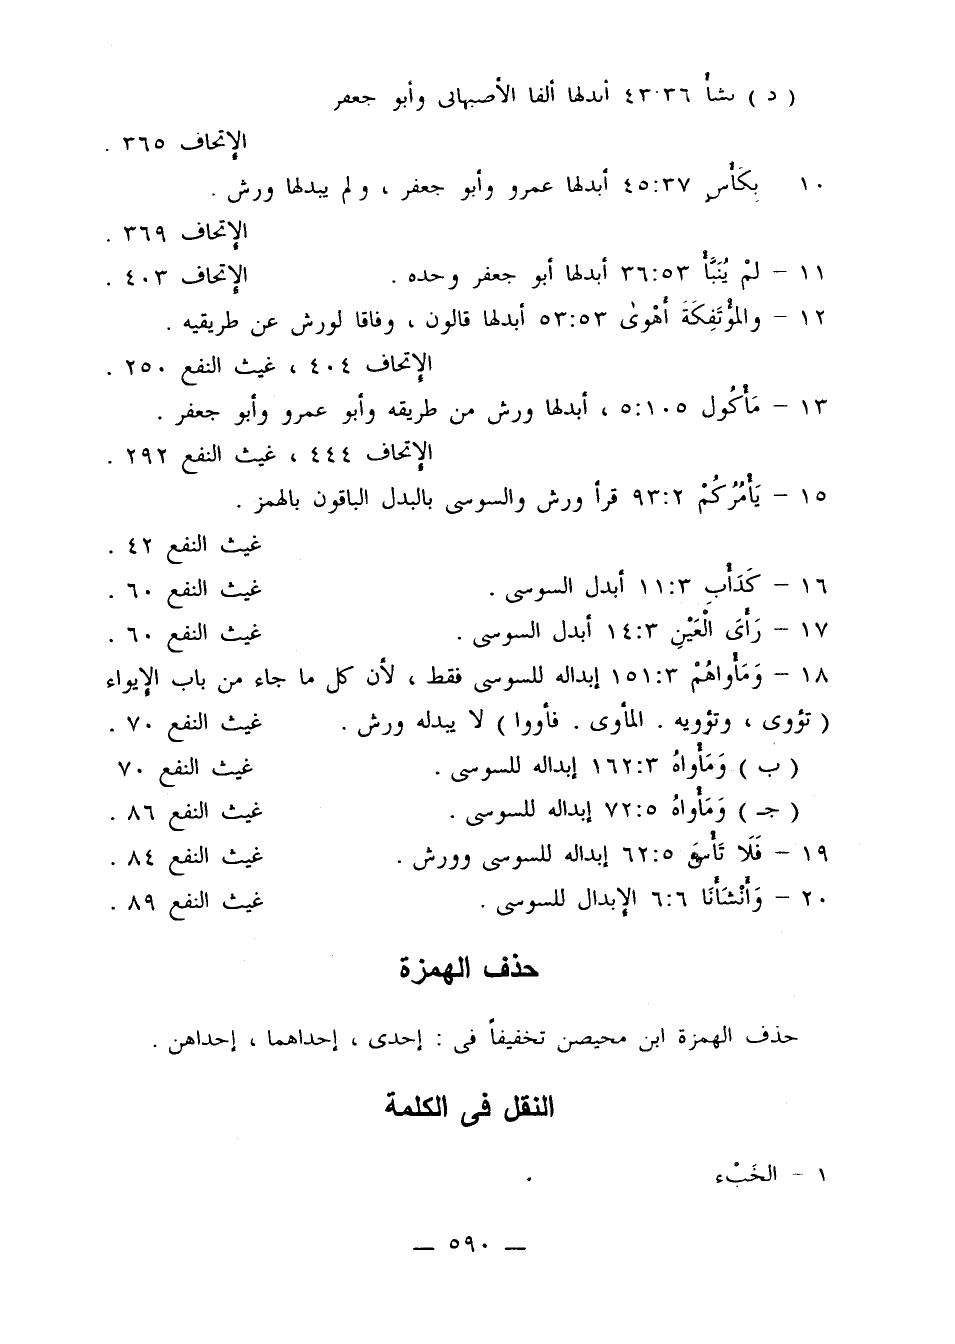 ( د ) نشأ ٣٦·٤٣ أبدلها ألفا الأصبهانى وأبو جعفر
الإتحاف ٣٦٥ .
١٠ بِكَأْسٍ ٣٧:٤٥ أبدلها عمرو وأبو جعفر ، ولم يبدلها ورش .
الإتحاف ٣٦٩ .
١١ - لمْ يُنَبَّأْ ٥٣:٣٦ أبدلها أبو جعفر وحده . الإتحاف ٤٠٣ .
١٢ - والمؤْتَفِكَةَ أَهْوىٰ ٥٣:٥٣ أبدلها قالون ، وفاقا لورش عن طريقيه .
الإتحاف ٤٠٤ ، غيث النفع ٢٥٠ .
١٣ - مَأْكُول ١٠٥:٥ ، أبدلها ورش من طريقه وأبو عمرو وأبو جعفر .
الإتحاف ٤٤٤ ، غيث النفع ٢٩٢ .
١٥ - يَأْمُرُكُمْ ٢:٩٣ قرأ ورش والسوسى بالبدل الباقون بالهمز .
غيث النفع ٤٢ .
١٦ - كَدَأْبِ ٣:١١ أبدل السوسى . غيث النفع ٦٠ .
١٧ - رَأْىَ الْعَيْنِ ٣:١٤ أبدل السوسى . غيث النفع ٦٠ .
١٨ - وَمَأْواهُمْ ٣:١٥١ إبداله للسوسى فقط ، لأن كل ما جاء من باب الإيواء
( تؤوى ، وتؤويه . المأوى . فأووا ) لا يبدله ورش . غيث النفع ٧٠ .
( ب ) وَمَأْواهُ ٣:١٦٢ إبداله للسوسى . غيث النفع ٧٠
( جـ ) وَمَأْواهُ ٥:٧٢ إبداله للسوسى . غيث النفع ٨٦ .
١٩ - فَلَا تَأْسَ ٥:٦٢ إبداله للسوسى وورش . غيث النفع ٨٤ .
٢٠ - وَأَنْشَأْنَا ٦:٦ الإبدال للسوسى . غيث النفع ٨٩ .
حذف الهمزة
حذف الهمزة ابن محيصن تخفيفاً فى : إحدى ، إحداهما ، إحداهن .
النقل فى الكلمة
١ - الخَبْء .
— ٥٩٠ —